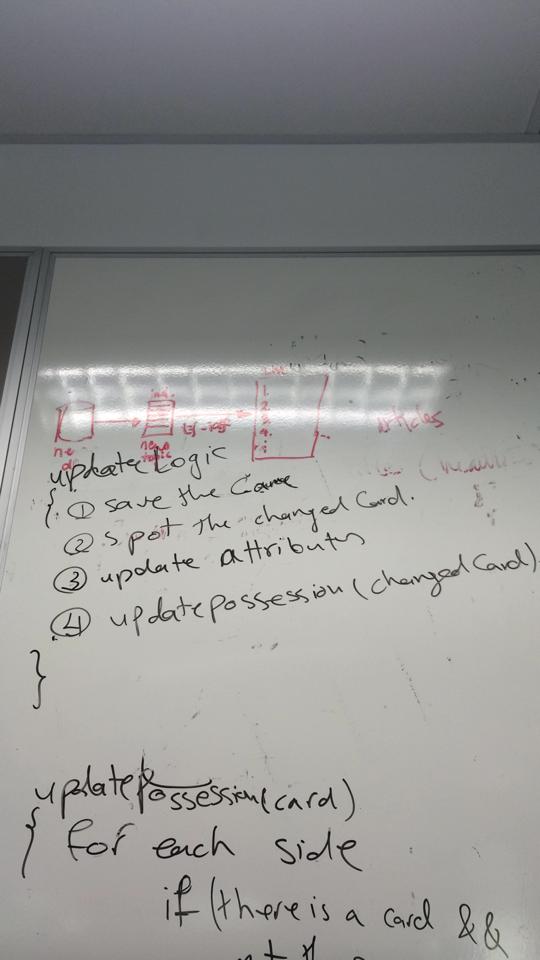 1.
2.
3.
4.
tf-idf
articles
updateLogic
{ ① save the Game
② spot the changed Card.
③ update attributes
④ updatepossession(changedCard)
}
updatePossession(card)
{ for each side
if (there is a card &&